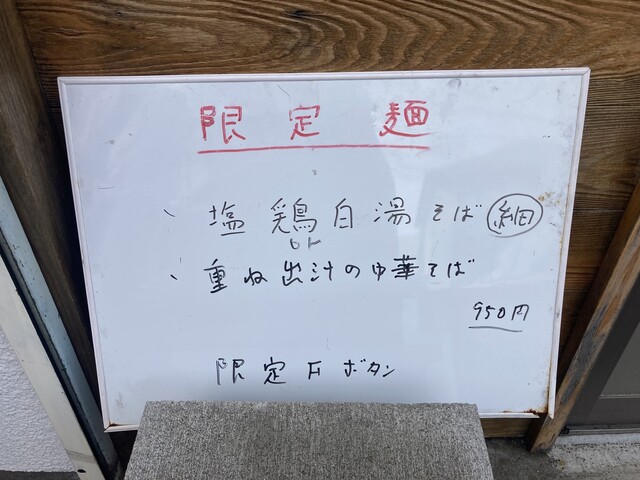 限定麺
、塩鶏白湯そば 細
or
、重ね出汁の中華そば
950円
限定Fボタン